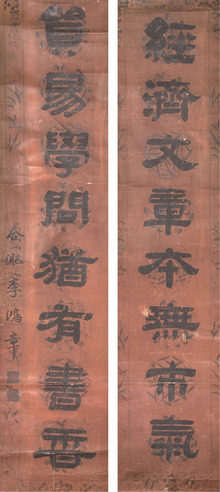 經濟文章本無市氣
貿易學問猶有書香
合肥李鴻章